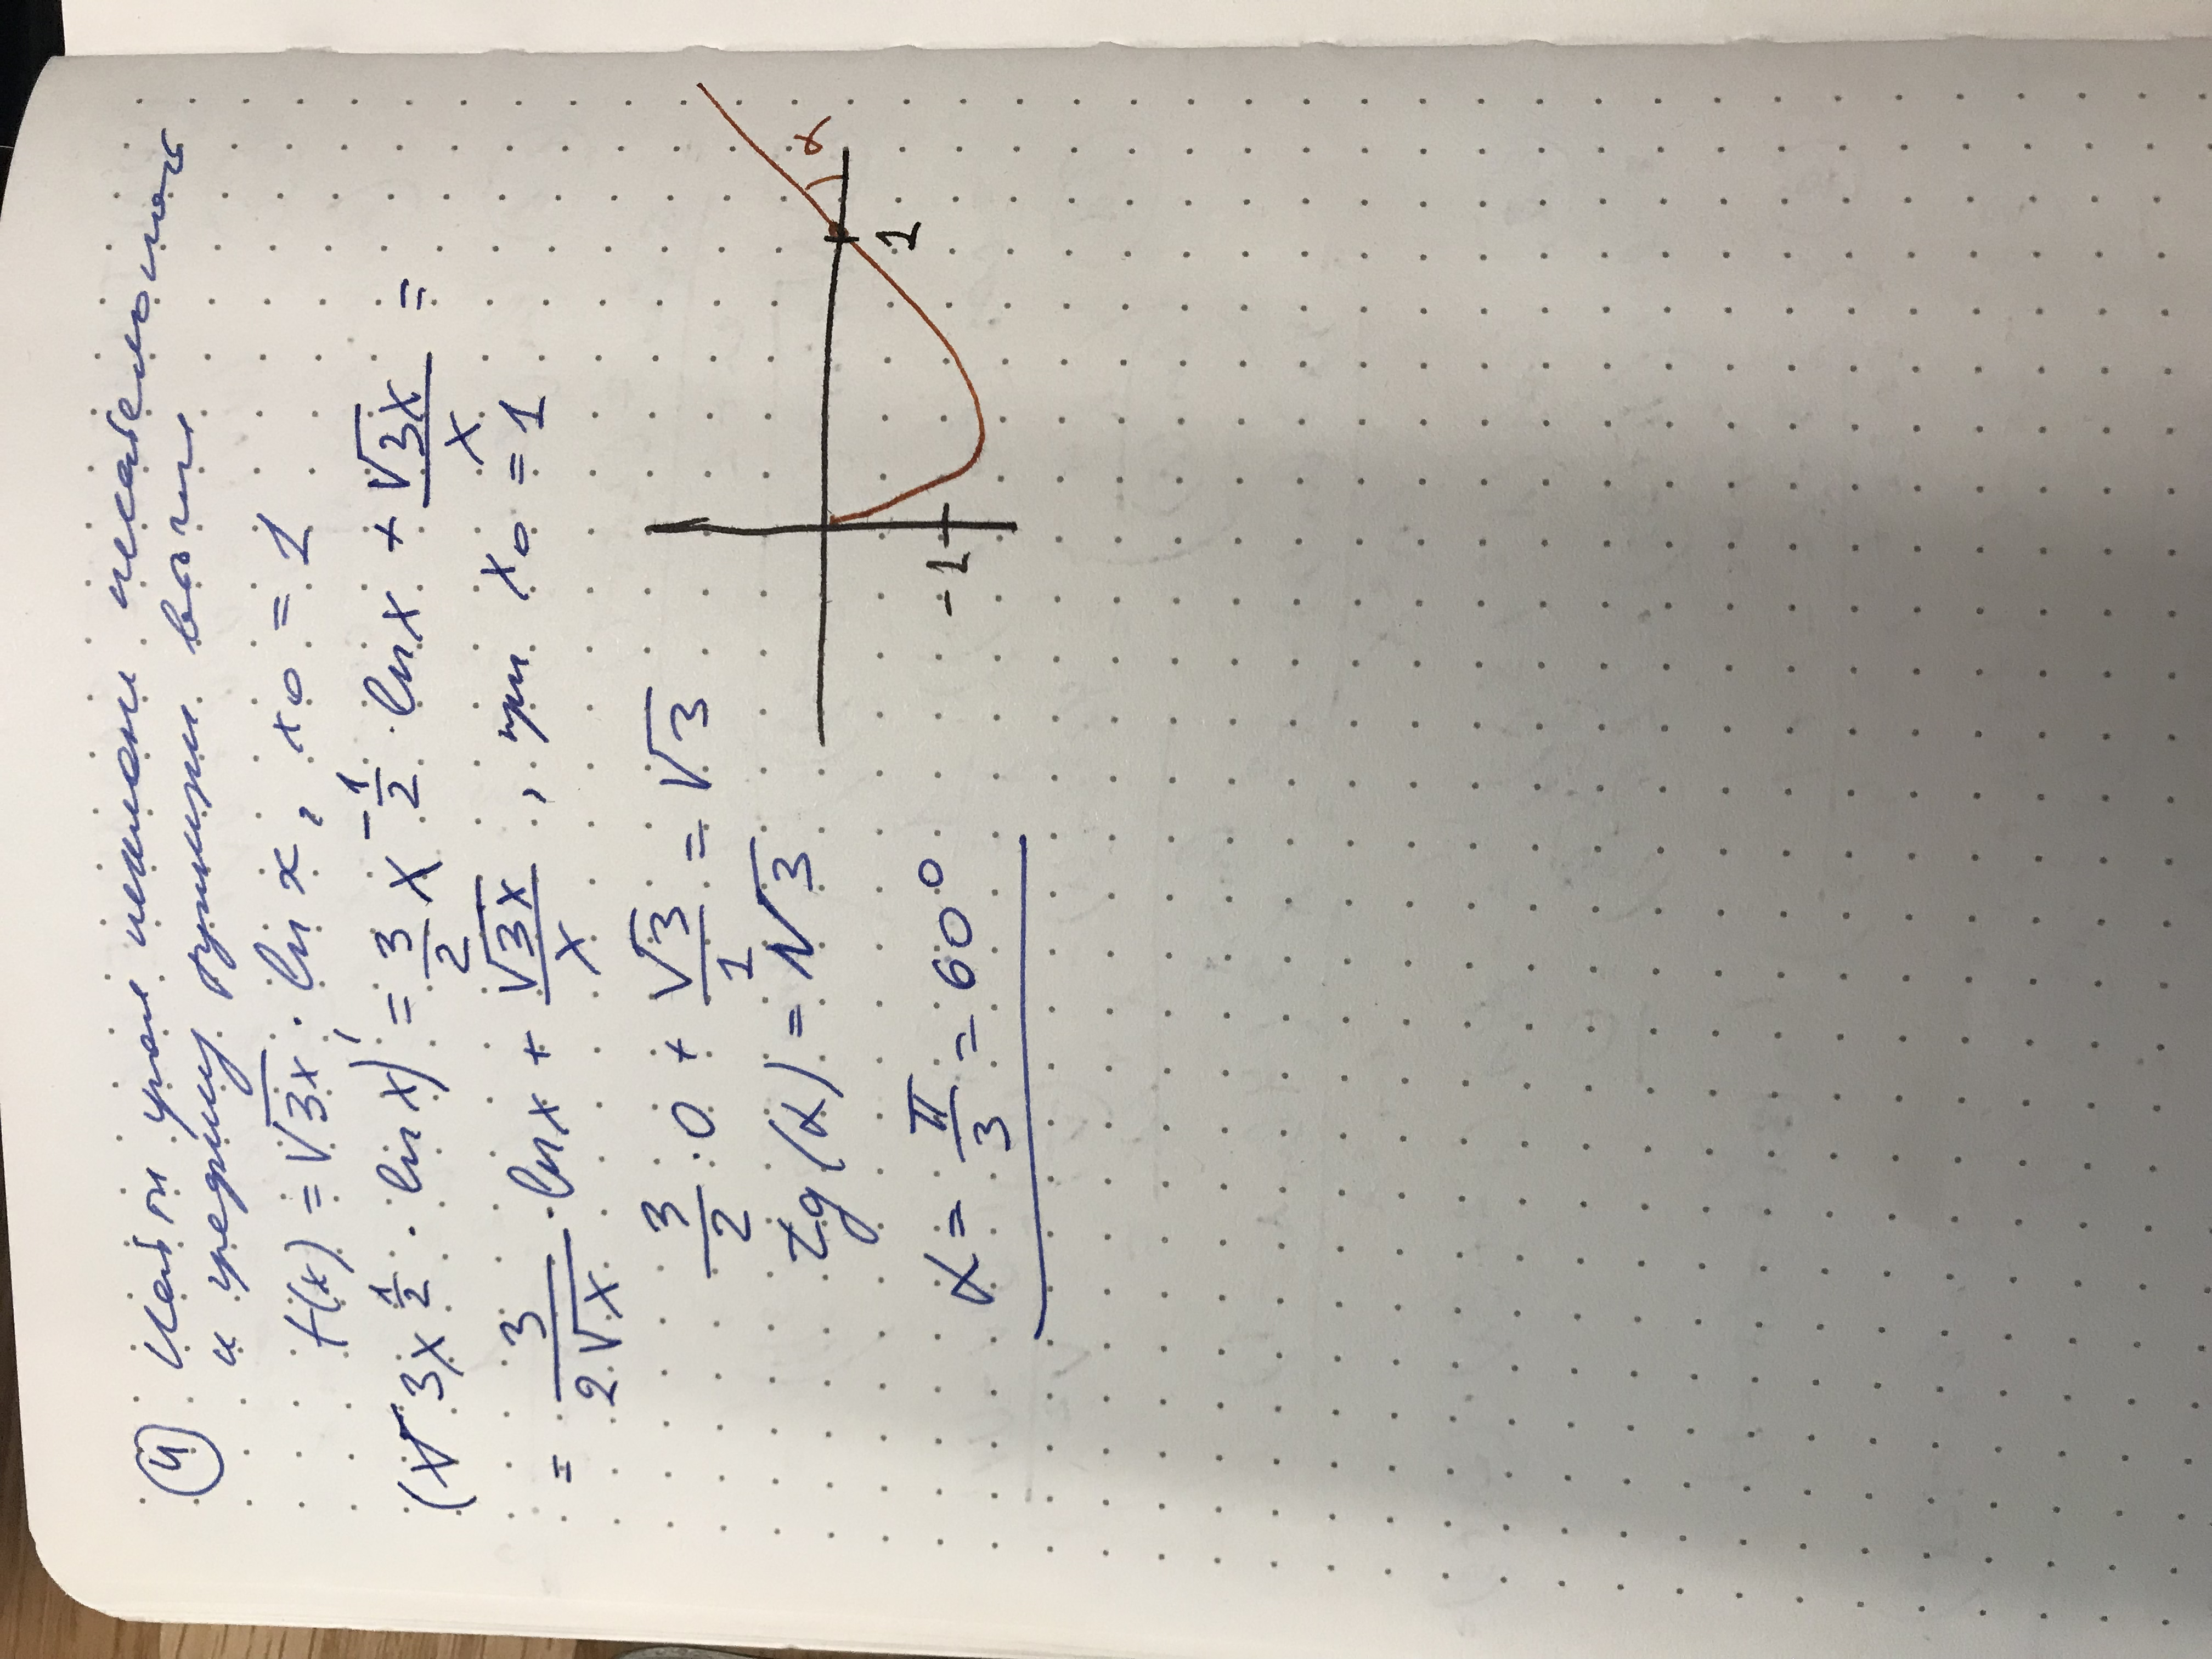 ④ Найти угол наклона касательной
к графику функции в точке
f(x) = √3x · ln x, x₀ = 1
(√ 3x^(1/2) · ln x)' = 3/2 x^(-1/2) · ln x + √3x/x =
= 3/(2√x) · ln x + √3x/x, при x₀ = 1
3/2 · 0 + √3/1 = √3
tg(α) = √3
α = π/3 = 60°
α
1
-1